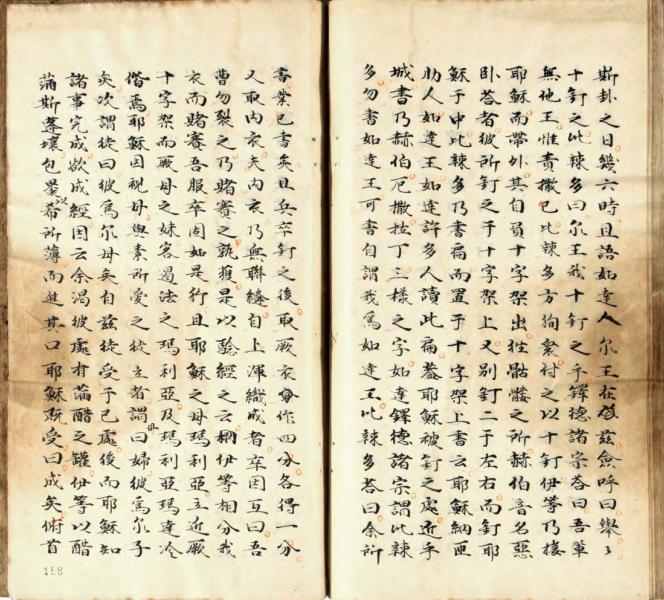 斯卦之日幾六時且語如達人爾王在玆僉呼曰舉〻
十釘之比辣多曰爾王我十釘之乎鐸德諸宗答曰吾輩
無他王惟責撒已比辣多方徇衆付之以十釘伊等乃接
耶穌而帶外其自負十字架出徃髑髏之所赫伯音名惡
卧荅者彼所釘之于十字架上又别釘二于左右而釘耶
穌于中比辣多乃書扁而置于十字架上書云耶穌納匝
肋人如達王如達許多人讀此扁葢耶穌被釘之處近乎
城書乃赫伯厄撒拉丁三樣之字如達鐸德諸宗謂比辣
多勿書如達王可書自謂我為如達王比辣多荅曰余所
書業已書矣且兵卒釘之後取厥衣分作四分各得一分
又取内衣夫内衣乃無聯縫自上渾織成者卒因互曰吾
曹勿裂之乃賭賽之孰獲是以騐經之云栁伊等相分我
衣而賭賽吾服卒固如是行且耶穌之母瑪利亞立近厥
十字架而厥母之妹客遏法之瑪利亞及瑪利亞瑪達冷
偕焉耶穌因視母與素所愛之徒立者謂母曰婦彼為爾子
矣次謂徒曰彼為爾母矣自玆徒受于已處後而耶穌知
諸事完成欲成經因云余渴彼處有滿醋之罐伊等以醋
滿斯蓬壤包裹以希所薄而進其口耶穌既受曰成矣俯首
188